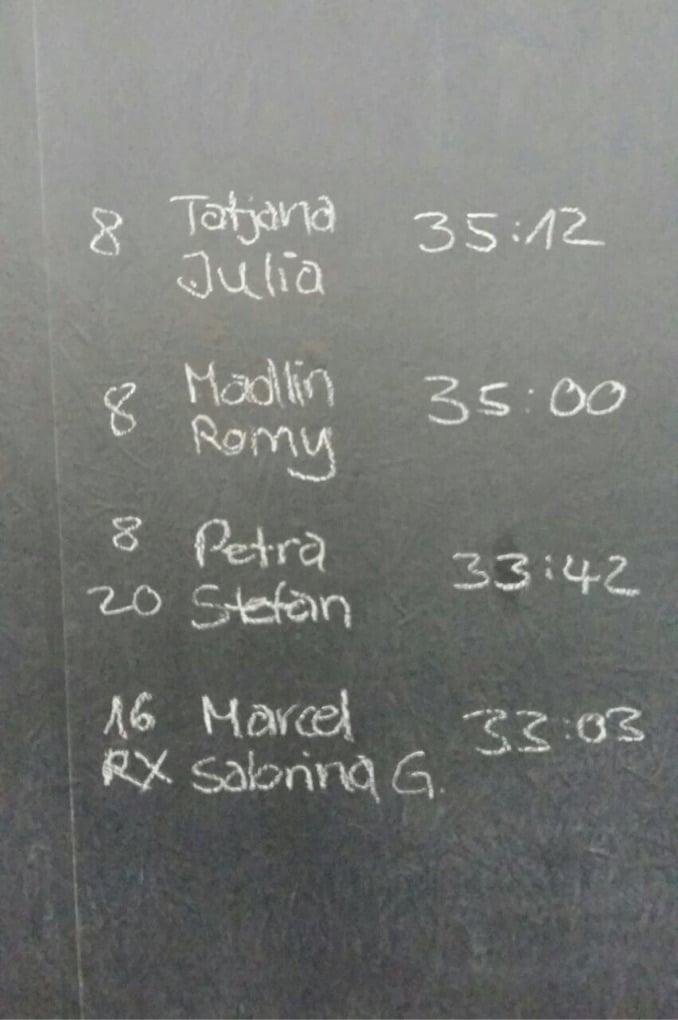 8 Tatjana 35:12
Julia
8 Madlin 35:00
Romy
8 Petra 33:42
20 Stefan
16 Marcel 33:03
RX Sabrina G.